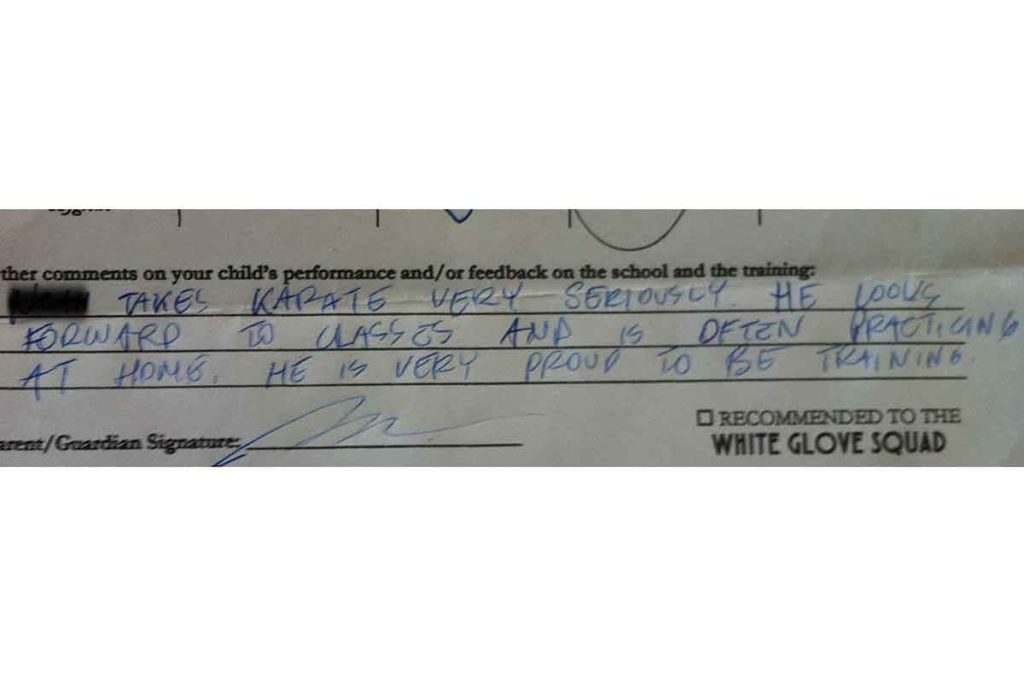 ther comments on your child's performance and/or feedback on the school and the training:
TAKES KARATE VERY SERIOUSLY. HE LOOKS
FORWARD TO CLASSES AND IS OFTEN PRACTICING
AT HOME. HE IS VERY PROUD TO BE TRAINING.
arent/Guardian Signature:
☐ RECOMMENDED TO THE
WHITE GLOVE SQUAD